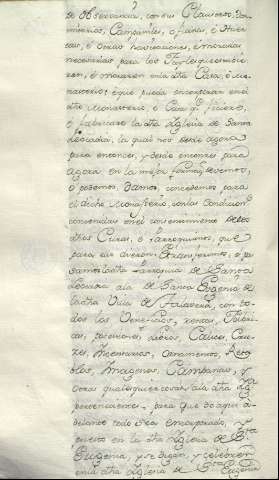 de Observancia, con sus Claustros, Dor-
mitorios, Campaniles, oficinas, o Huer-
tas, e otras havitaciones, e moradas
necesarias para los Frayles que estuvie-
ren, e moraren en la dha Casa, o Mo-
nasterio: e que pueda encorporar en el
dho Monasterio, o Casa que hiciere,
o fabricare la dha Yglesia de Santa
Leocadia, la qual nos desde agora
para entonces, y desde entonces para
agora en la mejor forma, que devemos,
o podemos, Damos, e concedemos para
el dicho Monasterio, con las Condiciones
contenidas en el consentimiento de los
dhos Curas, o Parroquianos, que
para ello dieron, e pa-
samos la dha Parroquia de Santa
Leocadia a la de Santa Eugenia de
la dha Villa de Talavera, con to-
dos los Veneficios, rentas, Fabri-
cas, posesiones, Libros, Calices, Cru-
zes, Incensarios, Ornamentos, Reta-
blos, Imagenes, Campanas, y
otras qualesquier cosas, a la dha Yga
pertenecientes, para que de aqui a-
delante todo sea encorporado, y
puesto en la dha Yglesia de Sta
Eugenia, y se digan, y celebren
en la dha Yglesia de Sta Eugenia